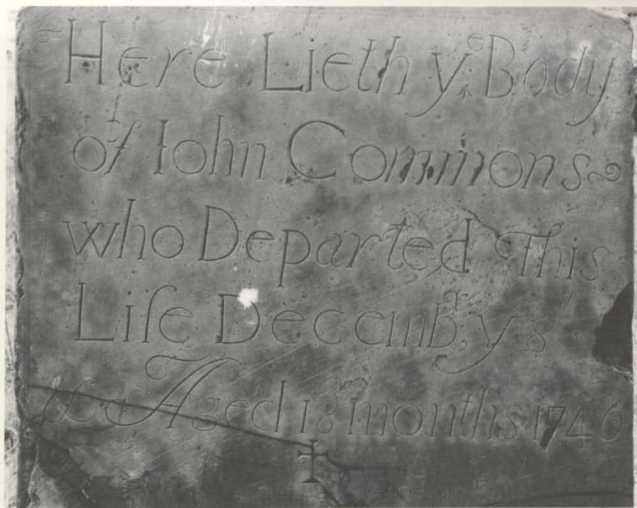 Here Lieth yͤ Body
of Iohn Commons
who Departed This
Life Decemb yͤ 8
Aged 18 months 1746